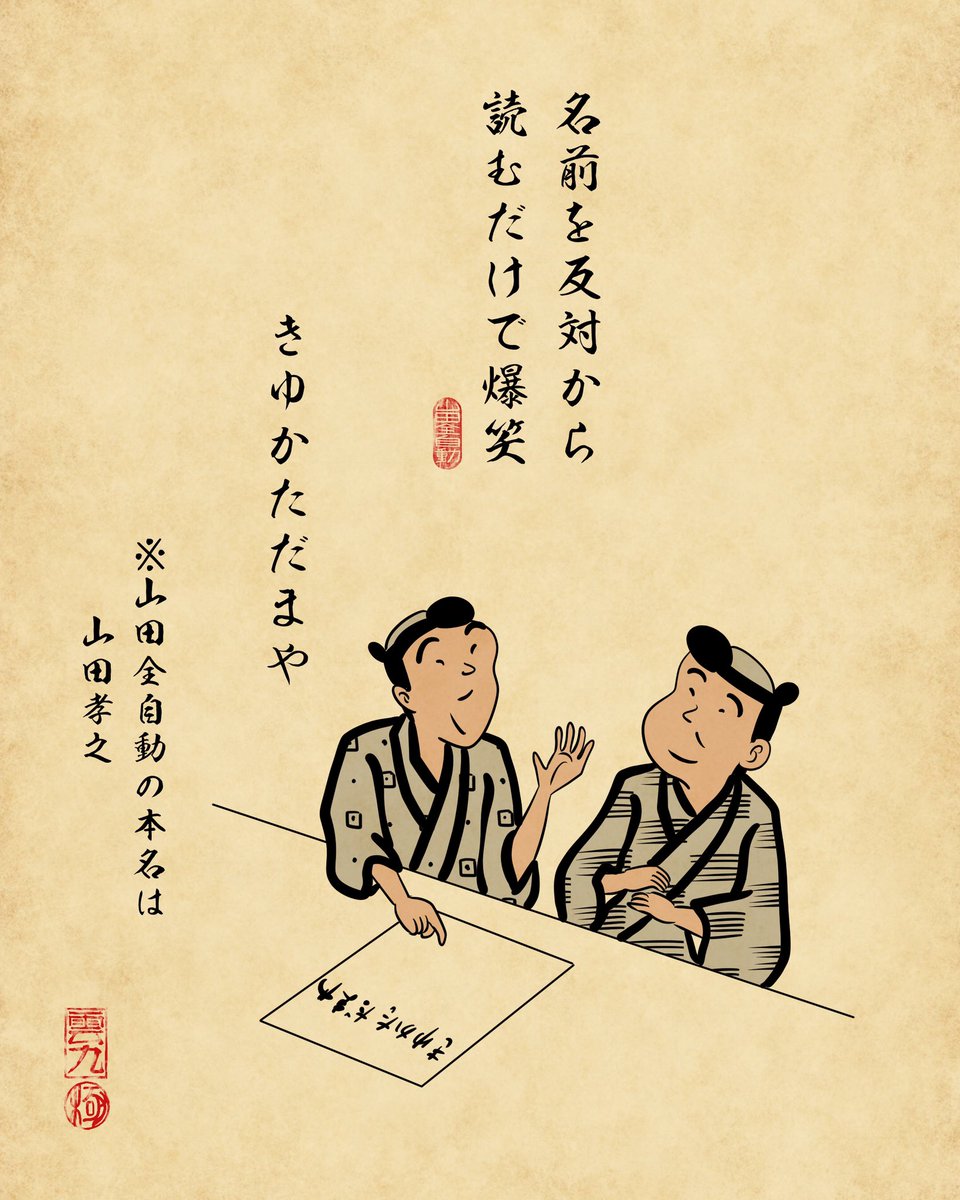 名前を反対から
読むだけで爆笑
山田全自動
きゆかただまや
※山田全自動の本名は
山田孝之
きゆかただまや